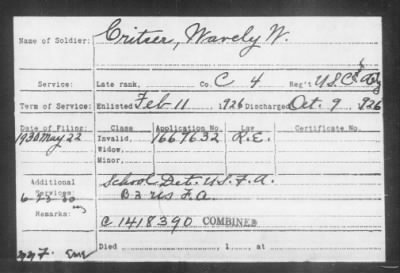 Name of Soldier: Critser, Wavely W.
Service: Late rank, Co. C 4 Reg't U.S.
Term of Service: Enlisted Feb 11, 1926 Discharged Oct. 9, 1926
Date of Filing: Class Application No. Law Certificate No.
1930 May 22 Invalid, 1667632 R.E.
Widow,
Minor,
Additional Services: School Det. U.S.F.A.
6-23-30 B 2 US F.A.
Remarks:
C 1418390 COMBINED
Died , 1 , at